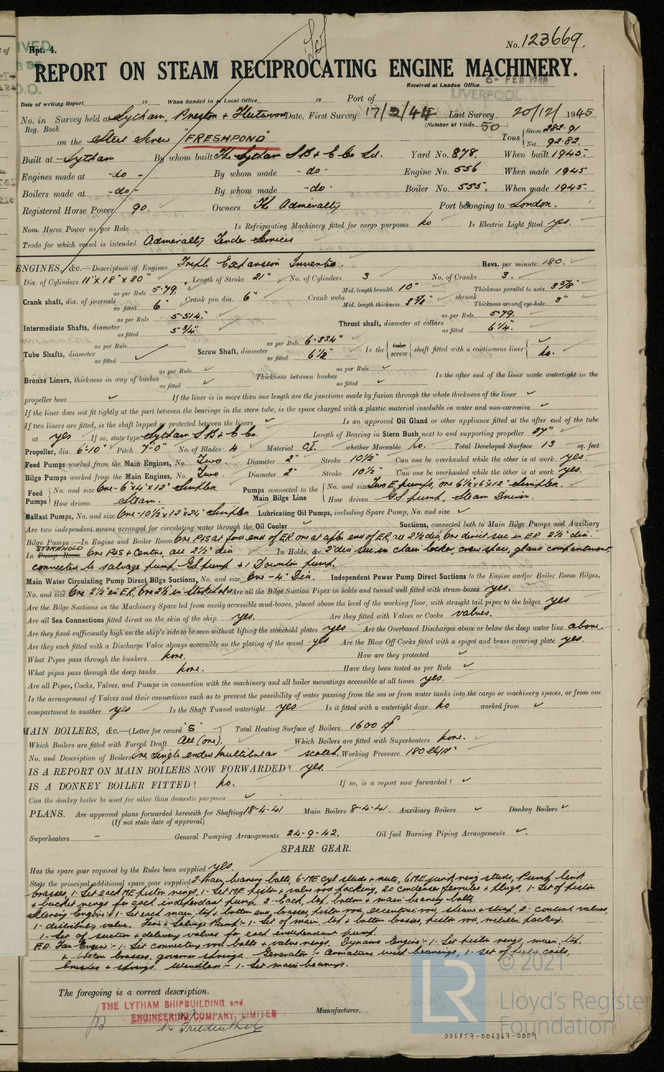 Rpt. 4.
No. 123669.
REPORT ON STEAM RECIPROCATING ENGINE MACHINERY.
Received at London Office
6- FEB 1946
Date of writing Report 19 When handed in at Local Office 19 Port of LIVERPOOL
No. in Survey held at Lytham, Preston & Fleetwood Date, First Survey 17/2/44 Last Survey 20/12/1945
Reg. Book (Number of Visits 50
on the Steel Screw "FRESHPOND" Tons Gross 282.91 Net 92.82
Built at Lytham By whom built The Lytham S.B & E. Co Ld. Yard No. 878. When built 1945.
Engines made at -do- By whom made -do- Engine No. 556 When made 1945
Boilers made at -do- By whom made -do- Boiler No. 555. When made 1945.
Registered Horse Power 90. Owners The Admiralty Port belonging to London.
Nom. Horse Power as per Rule Is Refrigerating Machinery fitted for cargo purposes No Is Electric Light fitted yes.
Trade for which vessel is intended Admiralty Tender Services
ENGINES, &c.—Description of Engines Triple Expansion Inverted. Revs. per minute 180.
Dia. of Cylinders 11" x 18" x 30" Length of Stroke 21" No. of Cylinders 3 No. of Cranks 3.
Crank shaft, dia. of journals as per Rule 5.79. as fitted 6" Crank pin dia. 6" Crank webs Mid. length breadth 10" Mid. length thickness 3¾" shrunk Thickness parallel to axis 3¾" Thickness around eye-hole 3"
Intermediate Shafts, diameter as per Rule 5.514. as fitted 5¾" Thrust shaft, diameter at collars as per Rule 5.79. as fitted 6¼.
Tube Shafts, diameter as per Rule as fitted Screw Shaft, diameter as per Rule 6.334" as fitted 6½" Is the tube screw shaft fitted with a continuous liner No.
Bronze Liners, thickness in way of bushes as per Rule as fitted Thickness between bushes as per Rule as fitted Is the after end of the liner made watertight in the
propeller boss If the liner is in more than one length are the junctions made by fusion through the whole thickness of the liner
If the liner does not fit tightly at the part between the bearings in the stern tube, is the space charged with a plastic material insoluble in water and non-corrosive
If two liners are fitted, is the shaft lapped or protected between the liners Is an approved Oil Gland or other appliance fitted at the after end of the tube
at yes If so, state type Lytham S.B & E Co. Length of Bearing in Stern Bush next to and supporting propeller 27"
Propeller, dia. 6'-10" Pitch 7'-0" No. of Blades 4 Material C.I. whether Moveable no. Total Developed Surface 13 sq. feet
Feed Pumps worked from the Main Engines, No. Two Diameter 2" Stroke 10½" Can one be overhauled while the other is at work yes.
Bilge Pumps worked from the Main Engines, No. Two Diameter 2" Stroke 10½ Can one be overhauled while the other is at work yes.
Feed Pumps No. and size One-6"x4"x12" Simplex Pumps connected to the Main Bilge Line No. and size Two E pumps, one 6½x6x12" Simplex.
How driven Steam. How driven G.S pump, Steam Driven.
Ballast Pumps, No. and size One-10½x12x24" Simplex Lubricating Oil Pumps, including Spare Pump, No. and size
Are two independent means arranged for circulating water through the Oil Cooler Suctions, connected both to Main Bilge Pumps and Auxiliary
Bilge Pumps:—In Engine and Boiler Room One P&S at for'd end of ER, one at after end of ER all 2½ dia. One direct suc. in ER 2½ dia.
In Pump Room STOKEHOLD One P&S & Centre, all 2½" dia In Holds, &c. 2" dia suc. in chain locker, crew space, gland compartment
connected to salvage pump, G.S. pump & 1 Downton pump.
Main Water Circulating Pump Direct Bilge Suctions, No. and size One-4" dia. Independent Power Pump Direct Suctions to the Engine and/or Boiler Room Bilges.
No. and size One 2½" in E.R, One 2½ in Stokehold Are all the Bilge Suction Pipes in holds and tunnel well fitted with strum-boxes yes.
Are the Bilge Suctions in the Machinery Space led from easily accessible mud-boxes, placed above the level of the working floor, with straight tail pipes to the bilges yes
Are all Sea Connections fitted direct on the skin of the ship yes. Are they fitted with Valves or Cocks valves.
Are they fixed sufficiently high on the ship's side to be seen without lifting the stokehold plates yes Are the Overboard Discharges above or below the deep water line above.
Are they each fitted with a Discharge Valve always accessible on the plating of the vessel yes Are the Blow Off Cocks fitted with a spigot and brass covering plate yes.
What Pipes pass through the bunkers None. How are they protected
What pipes pass through the deep tanks None. Have they been tested as per Rule
Are all Pipes, Cocks, Valves, and Pumps in connection with the machinery and all boiler mountings accessible at all times yes.
Is the arrangement of Valves and their connections such as to prevent the possibility of water passing from the sea or from water tanks into the cargo or machinery spaces, or from one
compartment to another yes Is the Shaft Tunnel watertight Is it fitted with a watertight door No worked from
MAIN BOILERS, &c.—(Letter for record S ) Total Heating Surface of Boilers 1600
Which Boilers are fitted with Forced Draft All (one). Which Boilers are fitted with Superheaters None.
No. and Description of Boilers One single ended multitubular Working Pressure 180 lb/□"
IS A REPORT ON MAIN BOILERS NOW FORWARDED? yes.
IS A DONKEY BOILER FITTED? No. If so, is a report now forwarded?
Can the donkey boiler be used for other than domestic purposes
PLANS. Are approved plans forwarded herewith for Shafting 18-4-41 Main Boilers 8-4-41. Auxiliary Boilers Donkey Boilers
(If not state date of approval)
Superheaters - General Pumping Arrangements 24-9-42. Oil fuel Burning Piping Arrangements
SPARE GEAR.
Has the spare gear required by the Rules been supplied yes.
State the principal additional spare gear supplied 2-Main bearing bolts, 6-ME cyl studs & nuts, 6 ME junk ring studs, Pump link
brasses, 1-Set each ME piston rings, 1-Set ME piston & valve rod packing, 20 condenser ferrules & plugs, 1-Set of piston
& bucket rings for each independent pump. 2-Each, top, bottom & main bearing bolts.
Steering Engine:- 1-Set each main, top & bottom end brasses, piston rod, eccentric rod, sheave & strap, 2-control valves,
1-distributing valve. Fire & Salvage Pump:- 1-Set of main, top & bottom brasses, piston rod metallic packing.
1-Set of suction & delivery valves for each independent pump.
F.D. Fan Engine:- 1-Set connecting rod bolts & valve rings. Dynamo Engine:- 1-Set piston rings, main, top,
& bottom brasses, governor springs. Generator:- Armature with bearings, 1-set of field coils,
brushes & springs. Windlass:- 1-Set main bearings.
The foregoing is a correct description.
THE LYTHAM SHIPBUILDING and
ENGINEERING COMPANY, LIMITED
Manufacturer.
© 2021
LR
Lloyd's Register
Foundation
006857-006867-0009